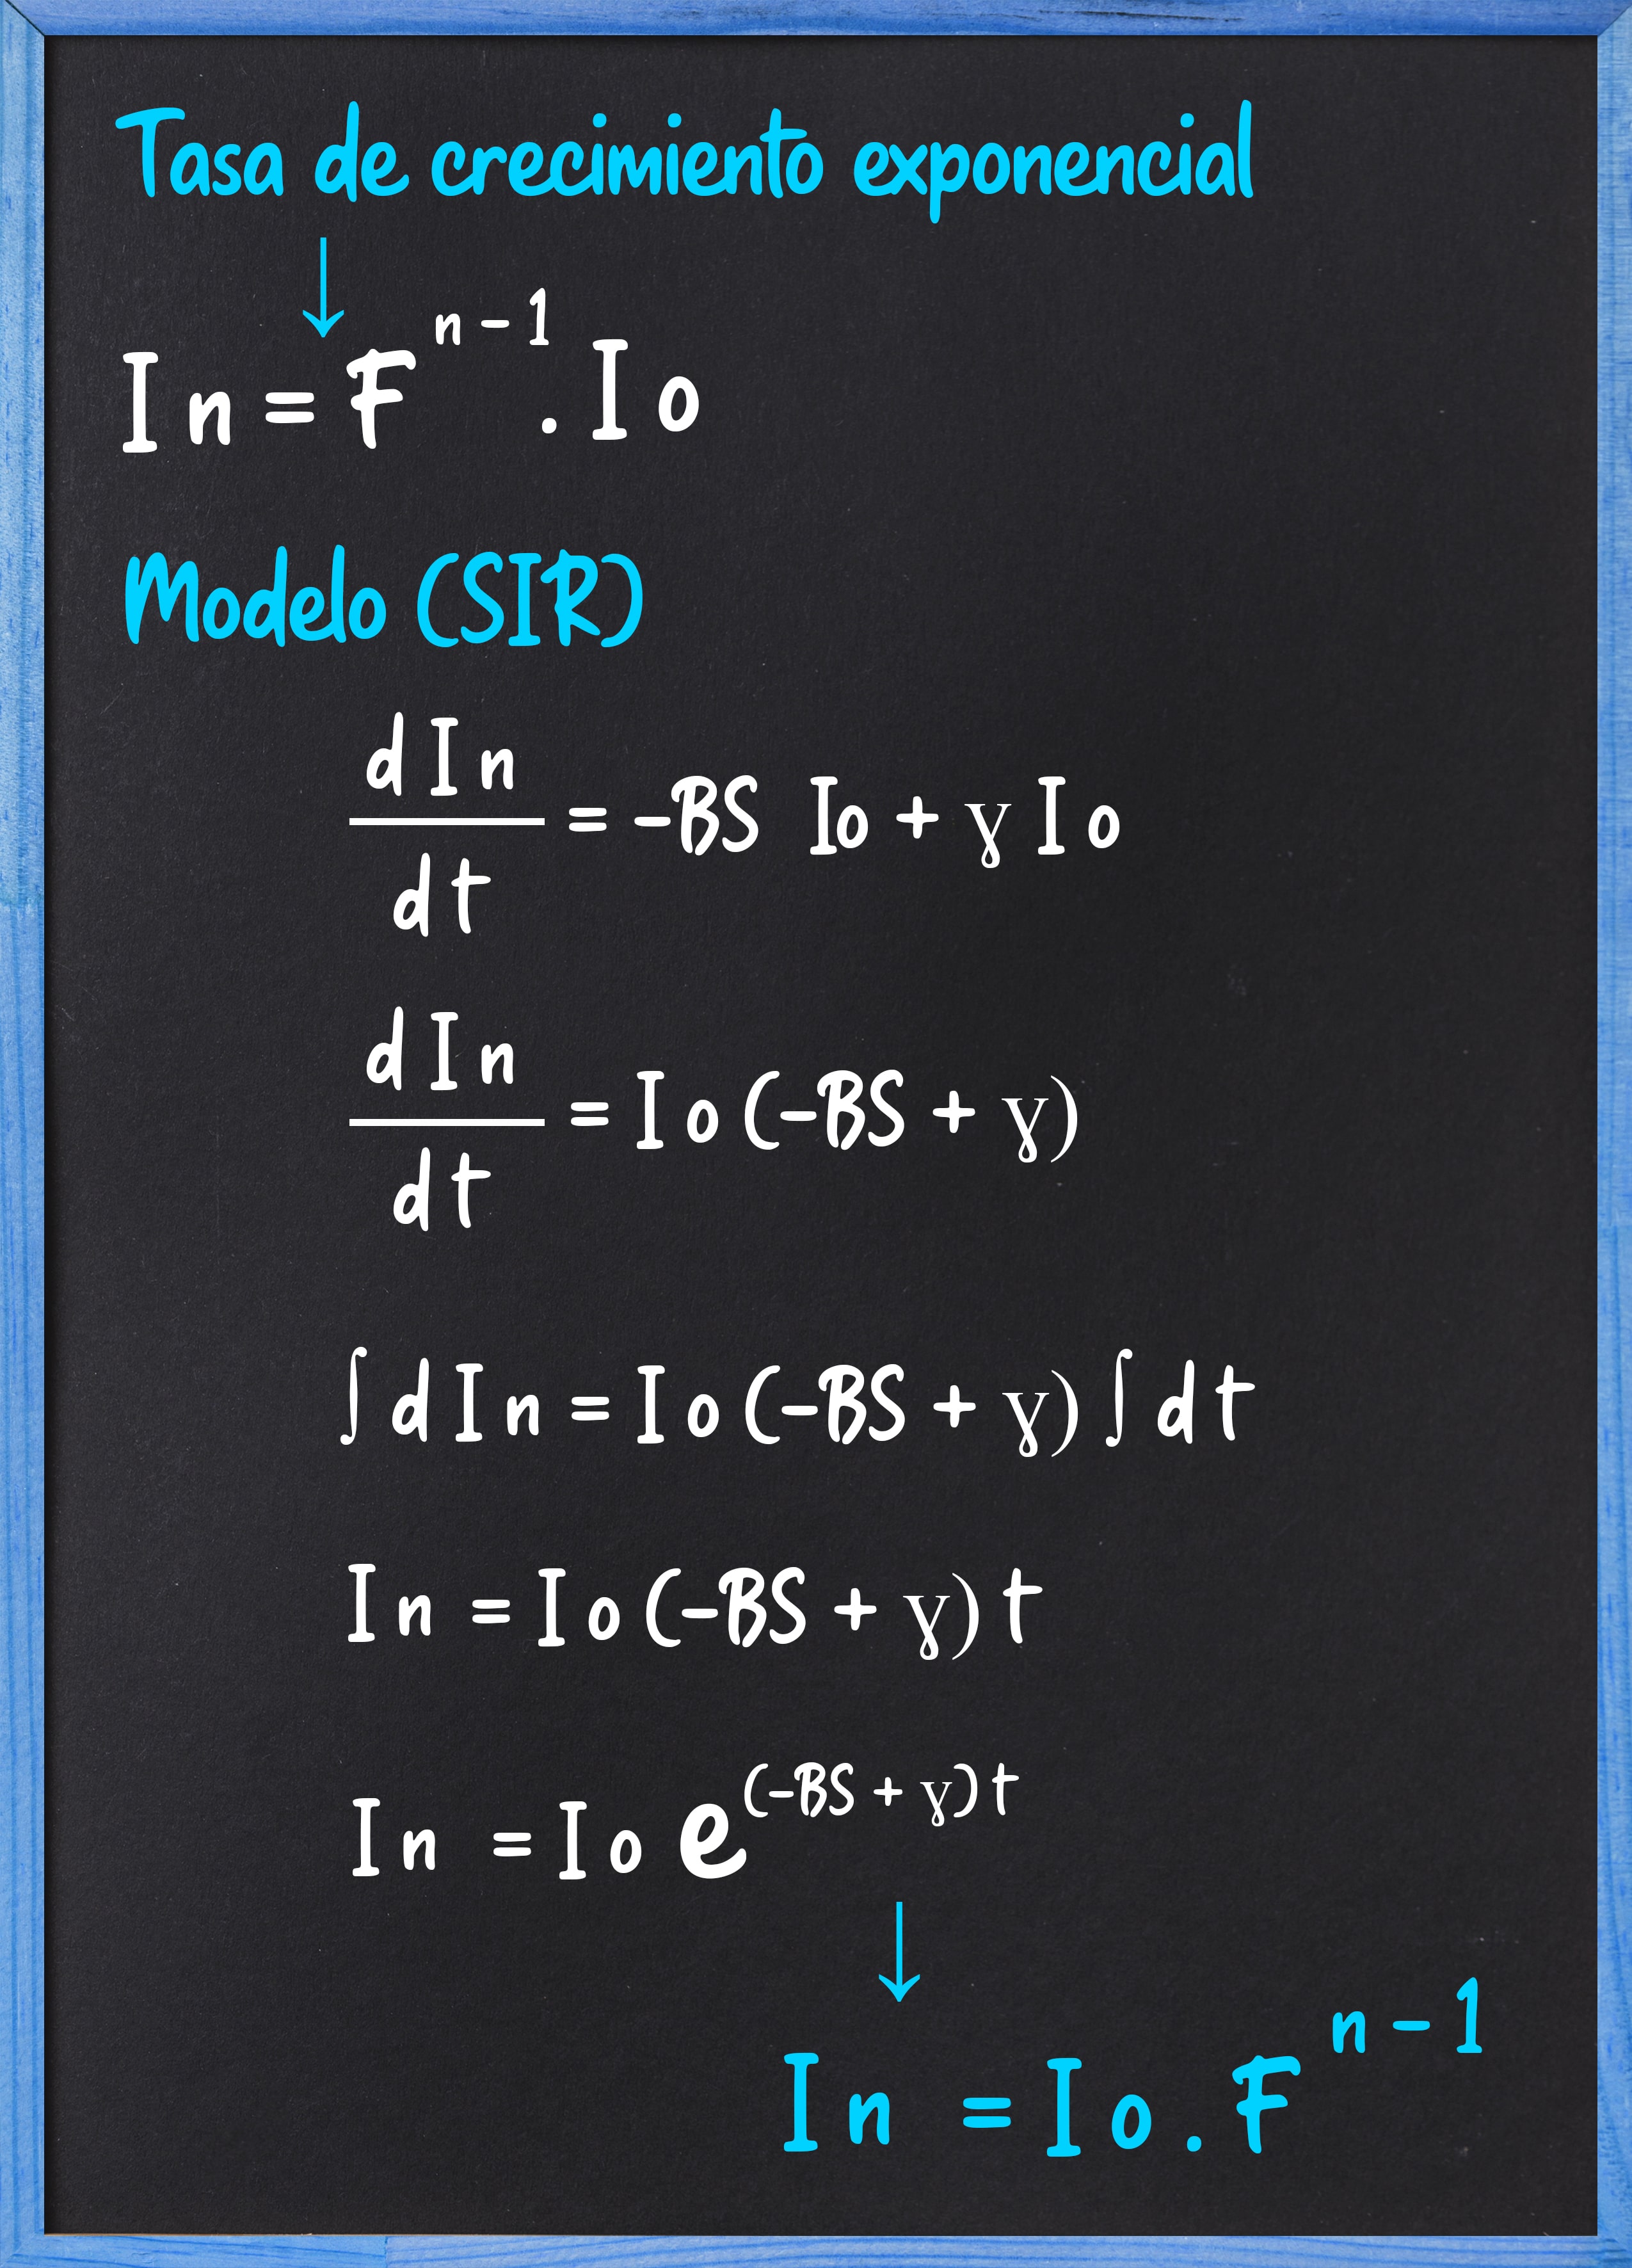 Tasa de crecimiento exponencial
↓
In = F^(n-1) . Io
Modelo (SIR)
dIn/dt = -BS Io + ɣ Io
dIn/dt = Io (-BS + ɣ)
∫ dIn = Io (-BS + ɣ) ∫ dt
In = Io (-BS + ɣ) t
In = Io e^((-BS + ɣ) t)
↓
In = Io . F^(n-1)